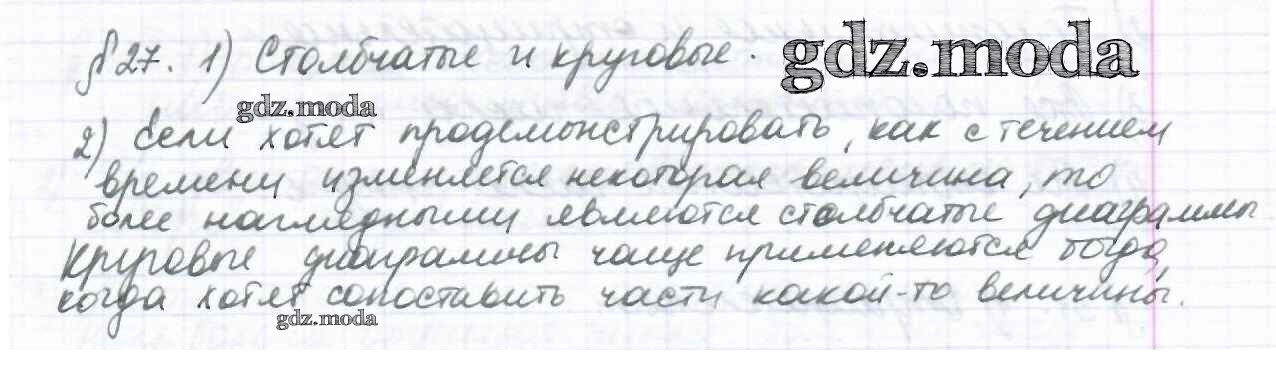 § 27. 1) Столбчатые и круговые. gdz.moda
gdz.moda
2) Если хотят продемонстрировать, как с течением
времени изменяется некоторая величина, то
более наглядными являются столбчатые диаграммы
Круговые диаграммы чаще применяются тогда,
когда хотят сопоставить части какой-то величины.
gdz.moda